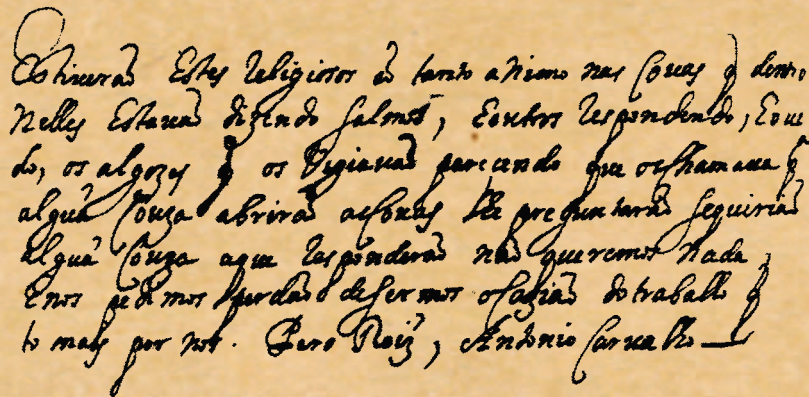 Estiuerão Estes Religiosos cõ tanto animo nas Couas q̃ dentro
nelles Estauão dizendo salmos, Eoutros Respondendo, Eouuin
do, os algozes q̃ os Vigiauão parecendo que os chamaua q̃
algũa Couza abrirão as Couas lhe preguntarão se queirão
algũa Couza aque Responderão não queremos nada,
Enos pedimos perdão de sermos ocazião do traballo q̃
to mais por nos. Pero Roiz, Antonio Carualho